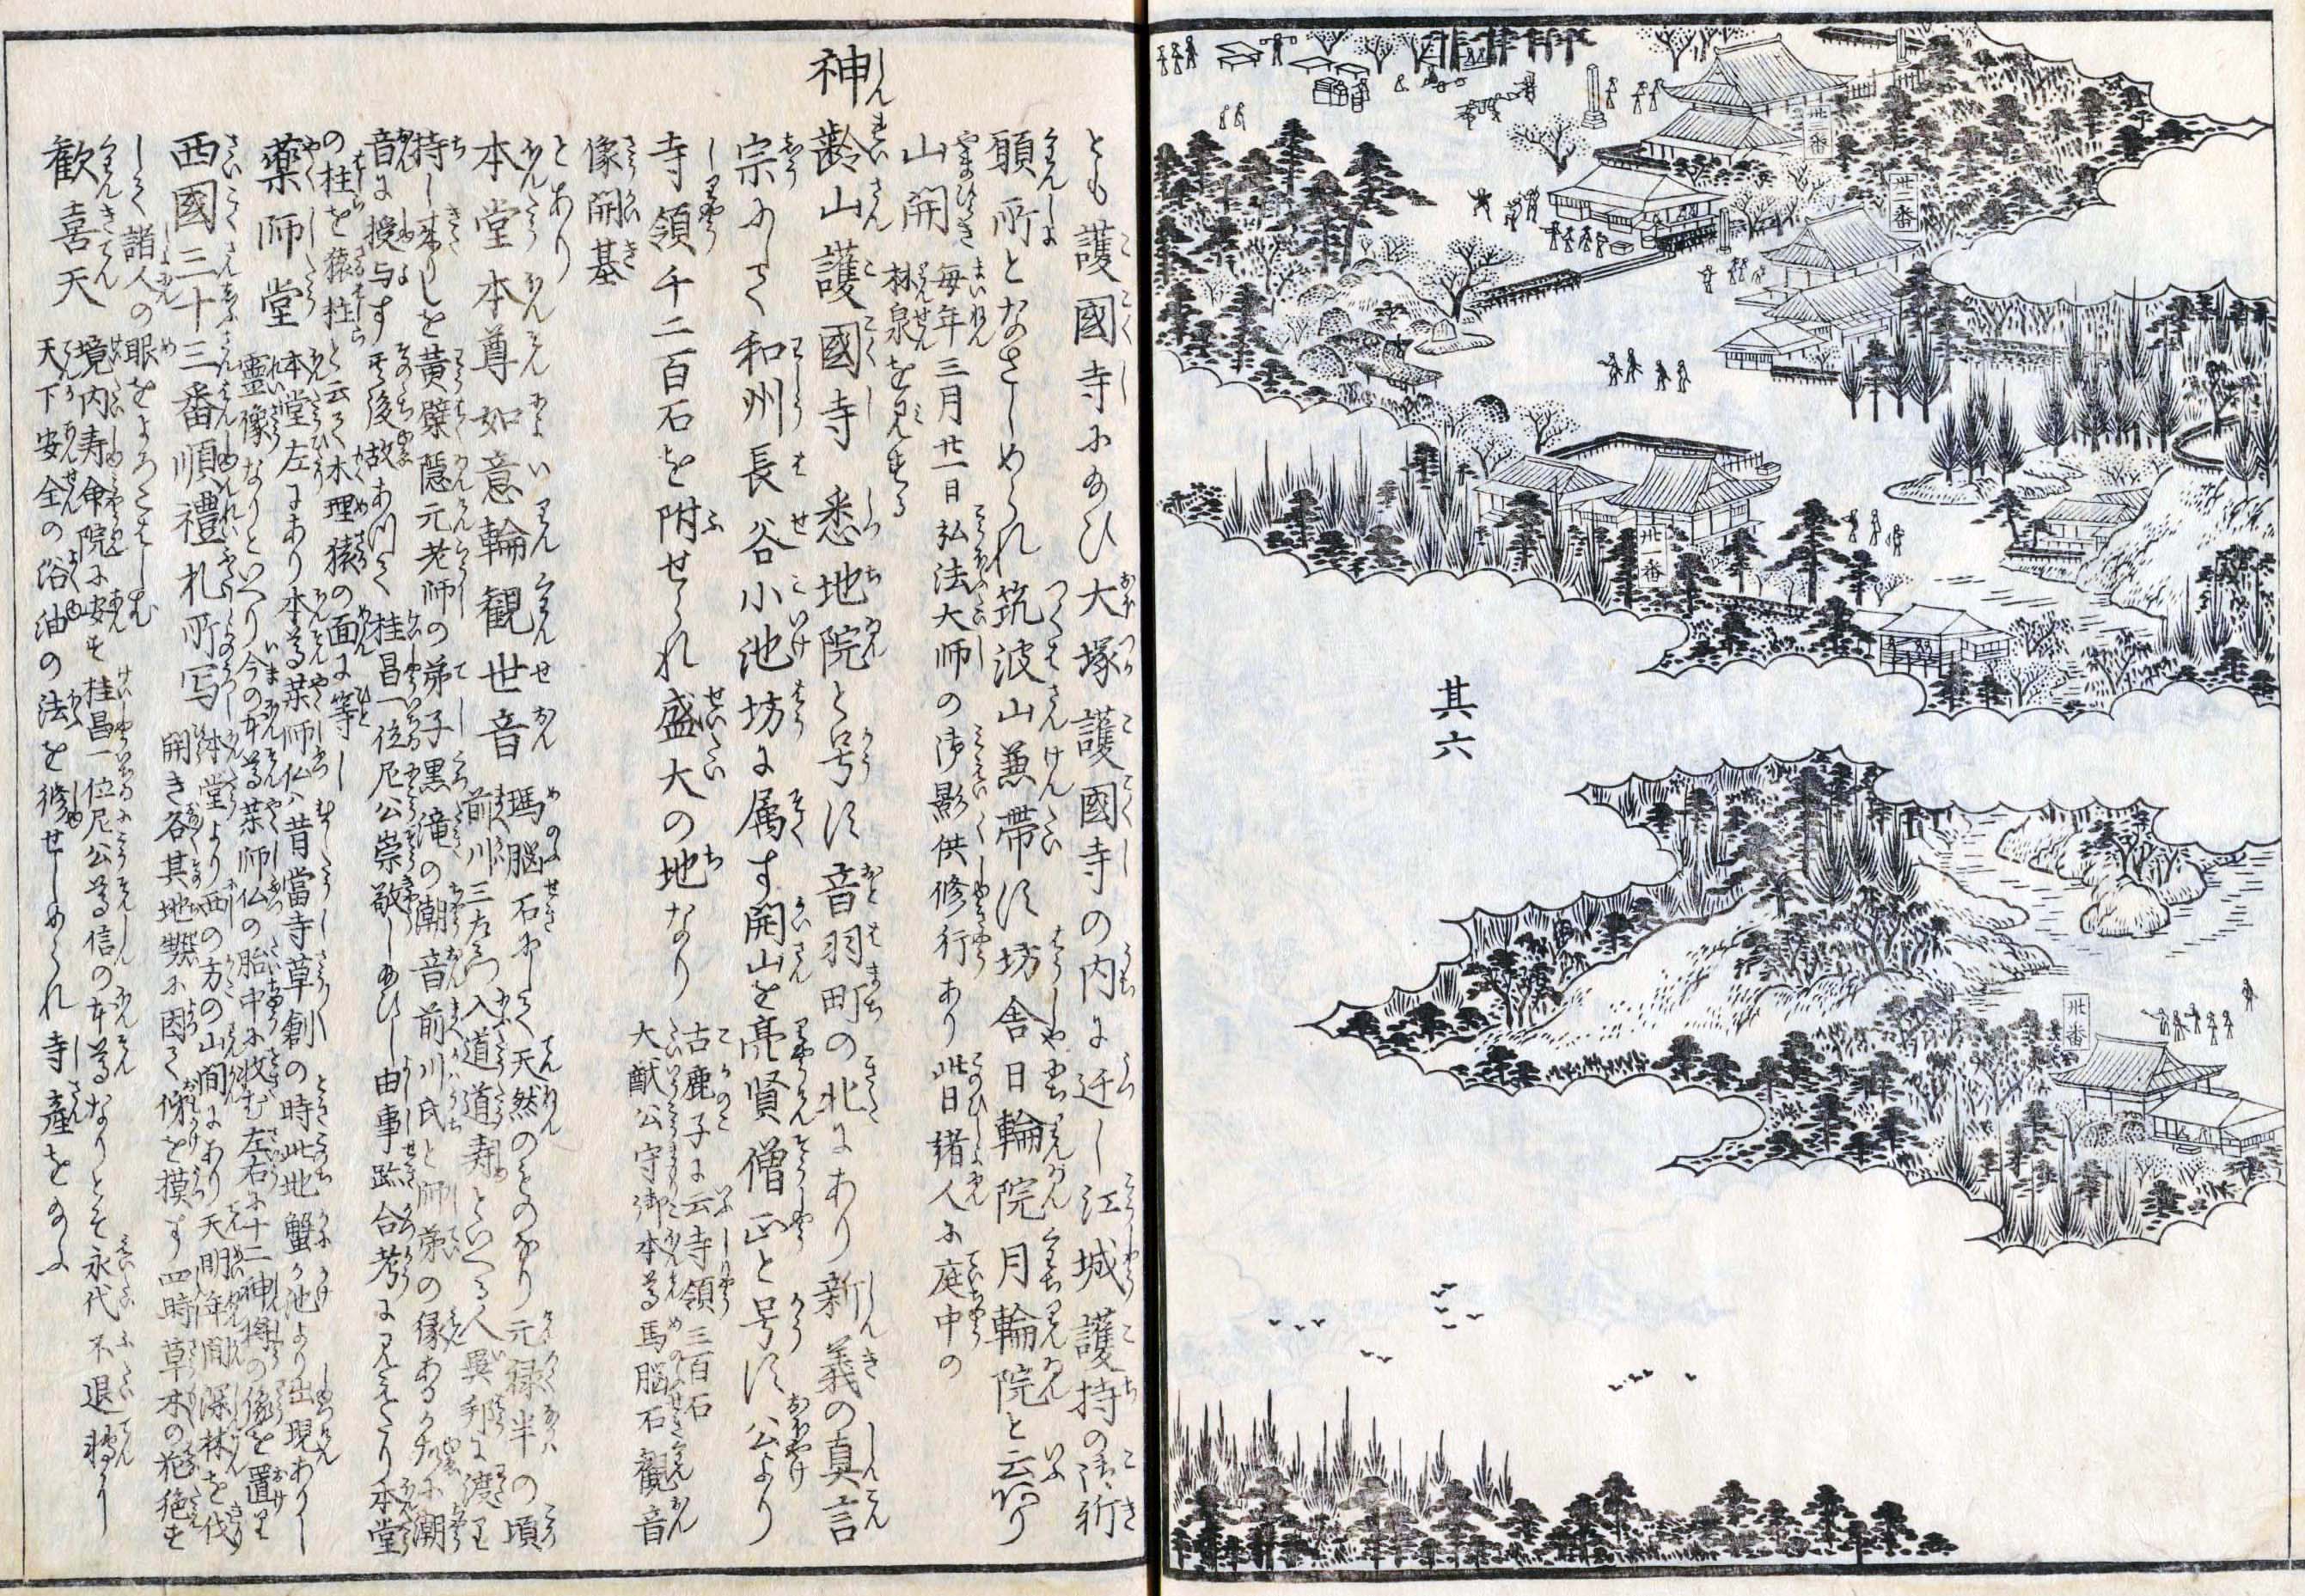 卅一番
卅一番
其六
とも護國寺にあひ大塚護國寺の内に迁し江城護持の御祈
願所となさしめられ筑波山兼帯す坊舎日輪院月輪院と云あり
山開 毎年三月廿一日弘法大師の御影供修行あり此日諸人に庭中の
林泉を見せる
神齢山護國寺 悉地院と号す音羽町の北にあり新義の真言
宗にして和州長谷小池坊に属す開山を亮賢僧正と号す公より
寺領千二百石を附せられ盛大の地なり 古鹿子に云寺領三百石
大猷公守御本尊馬脳石観音
像開基
とあり
本堂本尊如意輪観世音 瑪脳石にして天然のものなり元禄半の頃
前川三左衛門入道道寿といへる人異邦に渡り
持し来りしを黄檗隠元老師の弟子黒滝の潮音前川氏と師弟の縁あるか故に潮
音に授与す其後故ありて 桂昌一位尼公崇敬しあひし由事跡合考に見えたり本堂
の柱を猿柱と云て木理猿の面に等し
薬師堂 本堂左にあり本尊薬師仏ハ昔當寺草創の時此地蟹か池より出現ありし
霊像なりといへり今の本尊薬師仏の胎中に收む左右に十二神将の像を置り
西國三十三番順禮札所写 本堂より西の方の山間にあり天明年間深林を伐
開き各其地勢に因て俤を摸す四時草木の花絶す
して諸人の眼をよろこはしむ
歓喜天 境内寿命院に安す桂昌一位尼公尊信の本尊なりとそ永代不退轉に
天下安全の浴油の法を修せしめられ寺産を